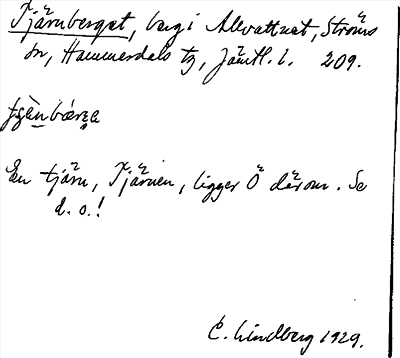 Tjärnberget, berg i Alvattnet, Ströms
sn, Hammerdals tg, Jämtl. l. 209.
En tjärn, Tjärnen, ligger Ö därom. Se
d. o.!
E. Lindberg 1929.